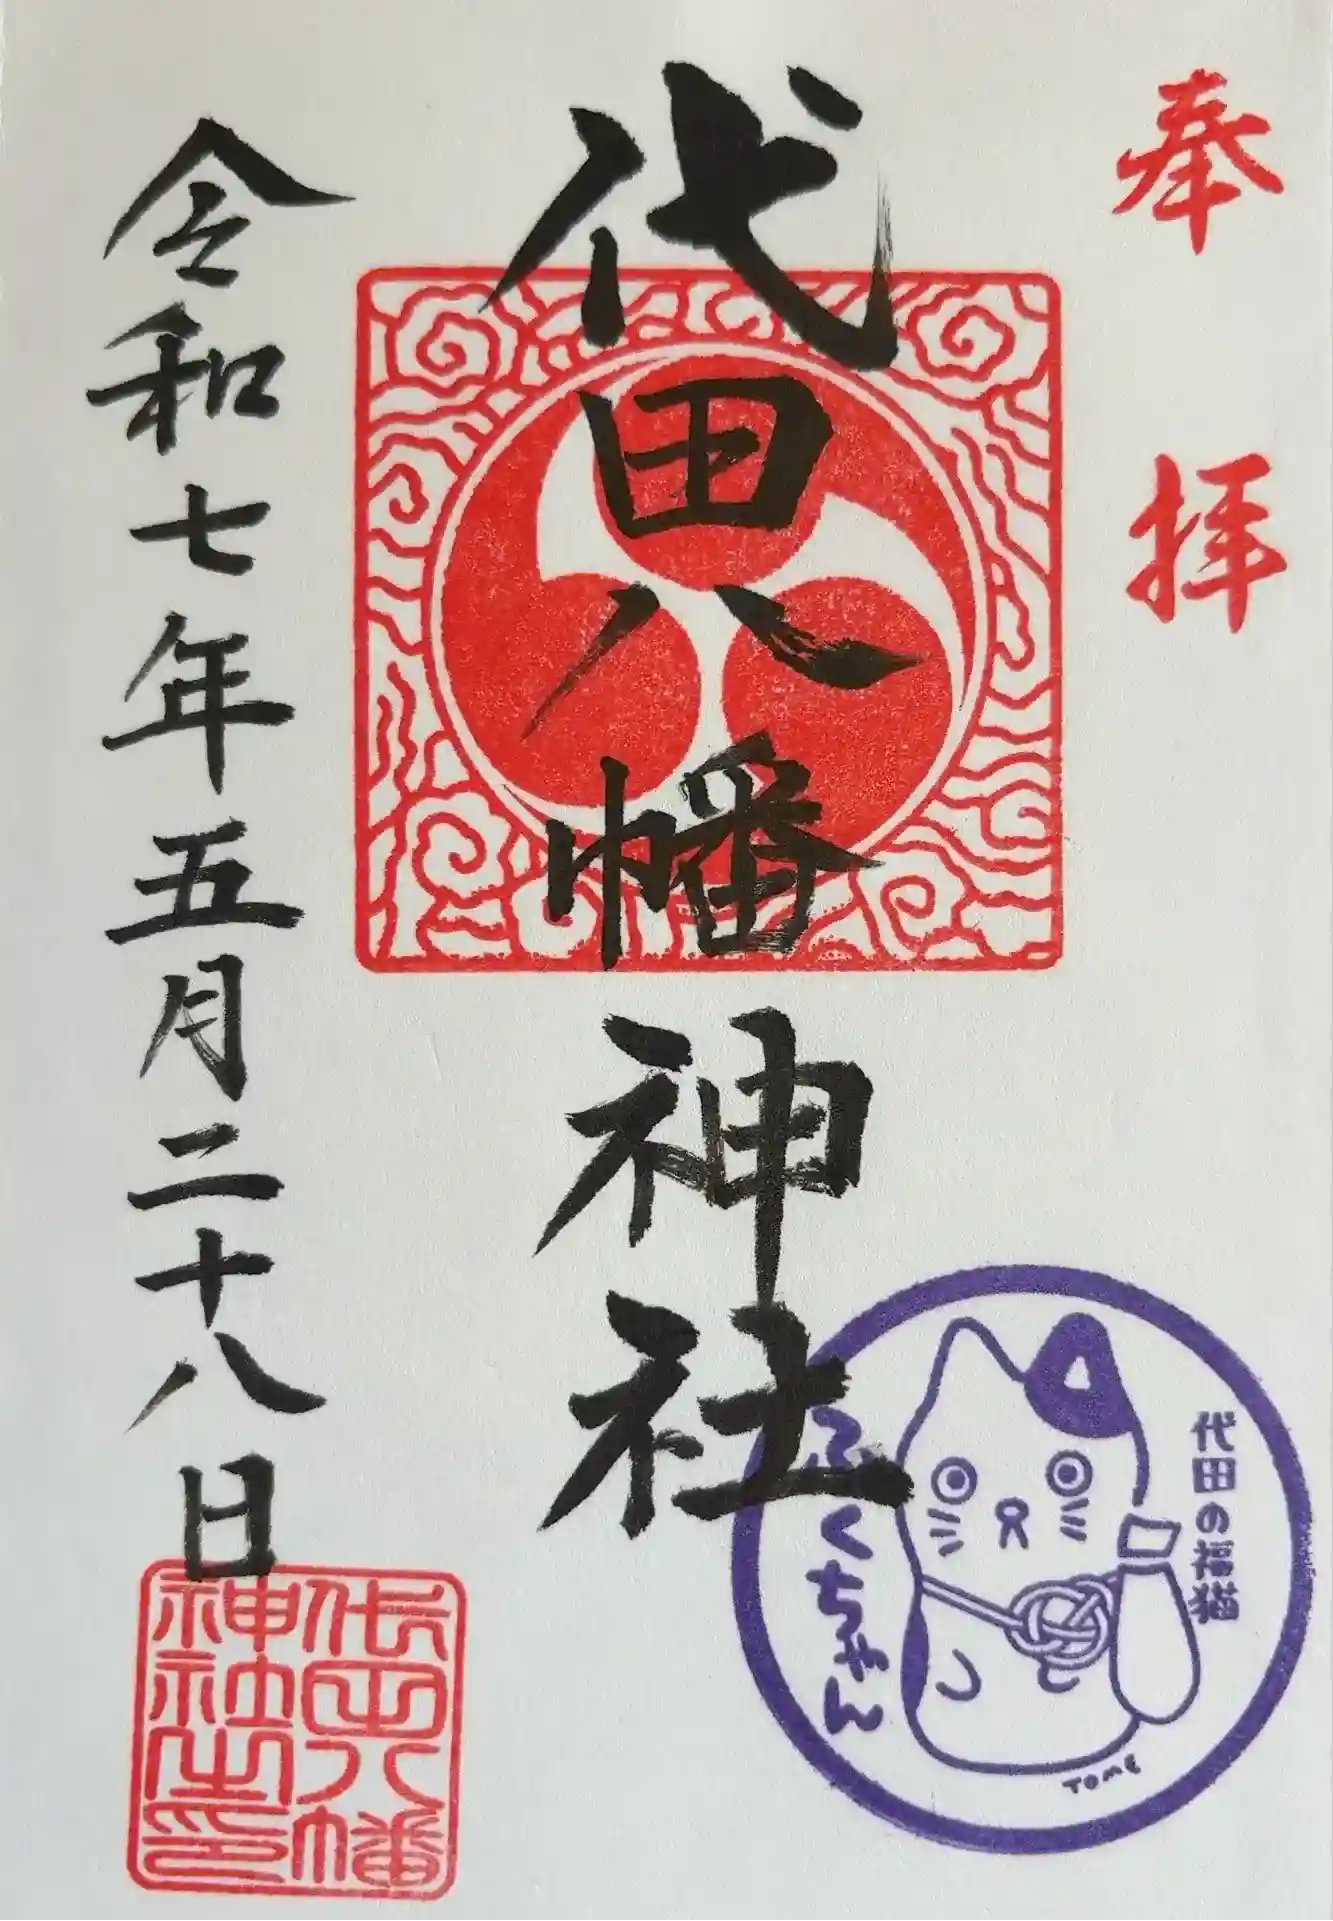 奉拝
代田八幡神社
令和七年五月二十八日
代田の福猫
ふくちゃん
TOME
代田八幡
神社之印